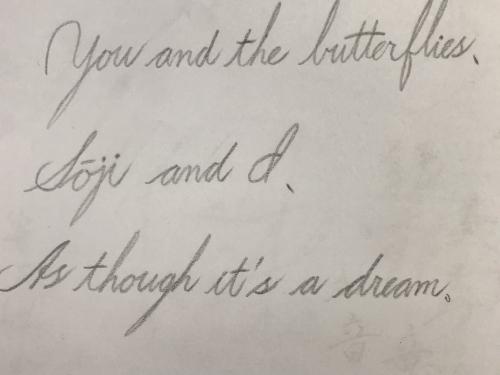 You and the butterflies、
Sōji and I、
As though it's a dream。